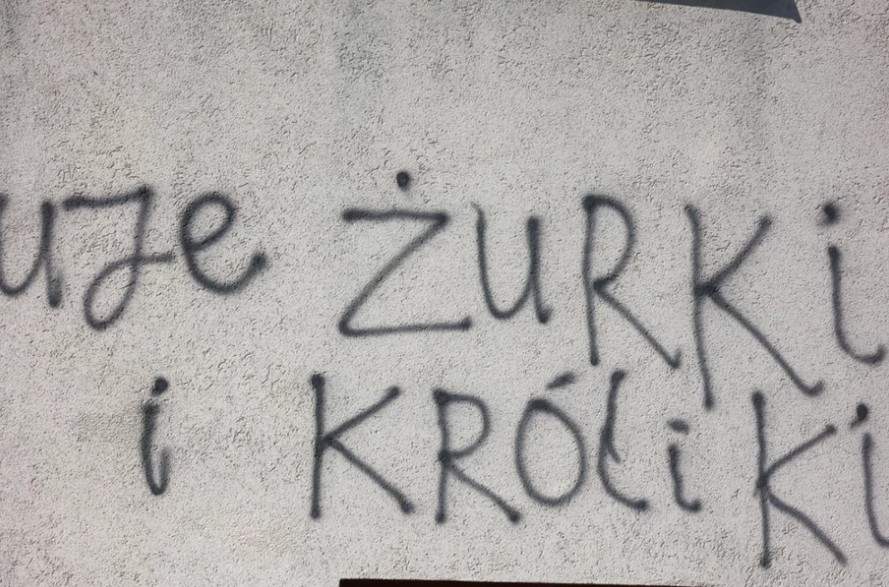 uje ŻURKi
i KRÓLiKi